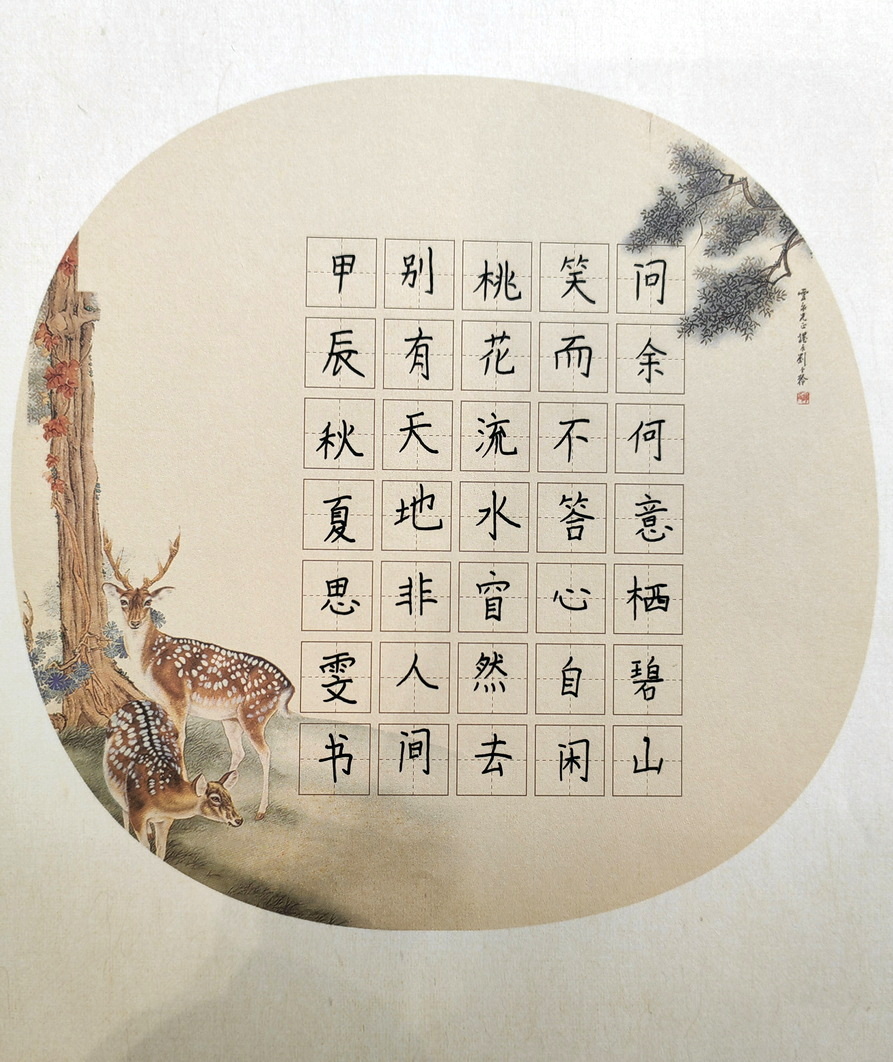 问余何意栖碧山
笑而不答心自闲
桃花流水窅然去
别有天地非人间
甲辰秋夏思雯书